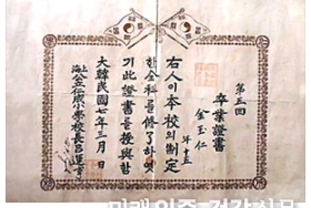 第五回
卒業證書
金玉仁
年十五
右人이本校의制定
한全科를修了하엿
기此證書를授與함
大韓民國七年三月 日
上海
仁成小學校長呂運亨